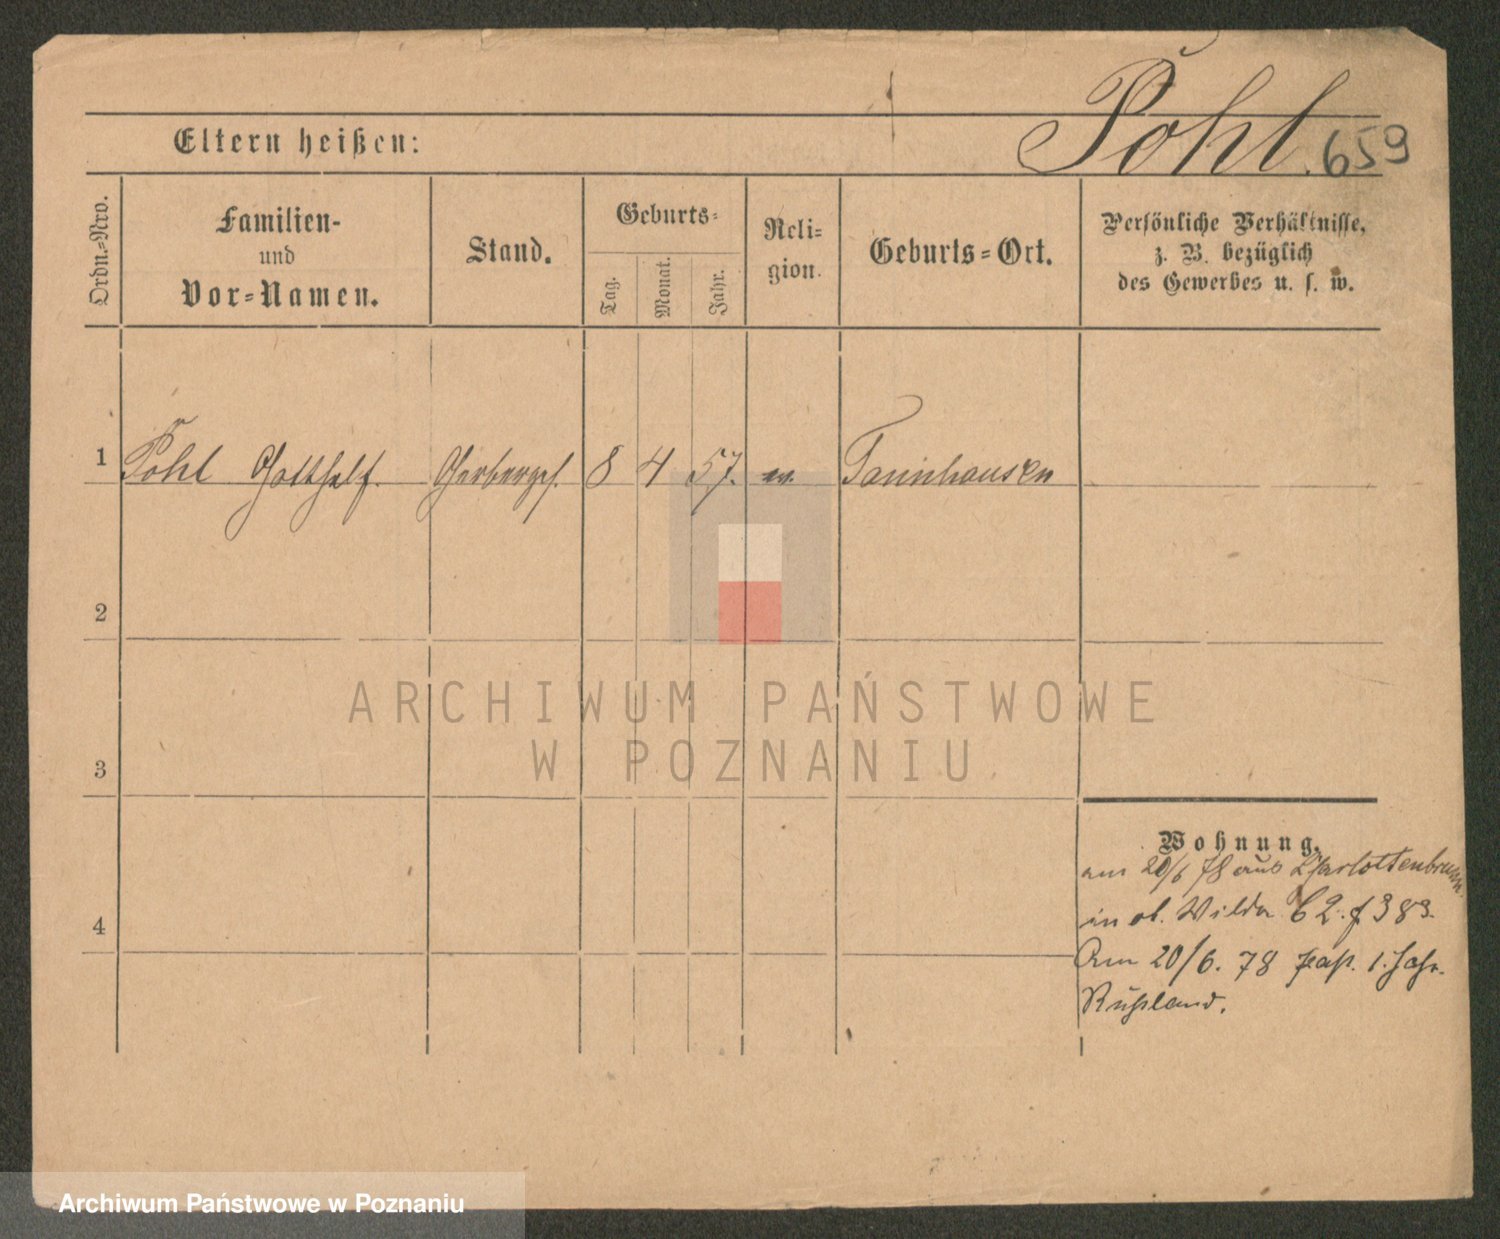 Pohl. 659
Eltern heißen:
Ordn.-Nro.
Familien-
und
Vor-Namen.
Stand.
Geburts-
Tag.
Monat.
Jahr.
Reli-
gion.
Geburts-Ort.
Persönliche Verhältnisse,
z. B. bezüglich
des Gewerbes u. s. w.
1 Pohl Gotthelf. Gerberges. 8 4 57. ev. Tannhausen
2
3
4
Wohnung.
am 20/6 78 aus Charlottenbrunn
in ob. Wilda 62. f 383.
Am 20/6. 78 paß. 1. Jahr.
Rußland.
ARCHIWUM PAŃSTWOWE
W POZNANIU
Archiwum Państwowe w Poznaniu